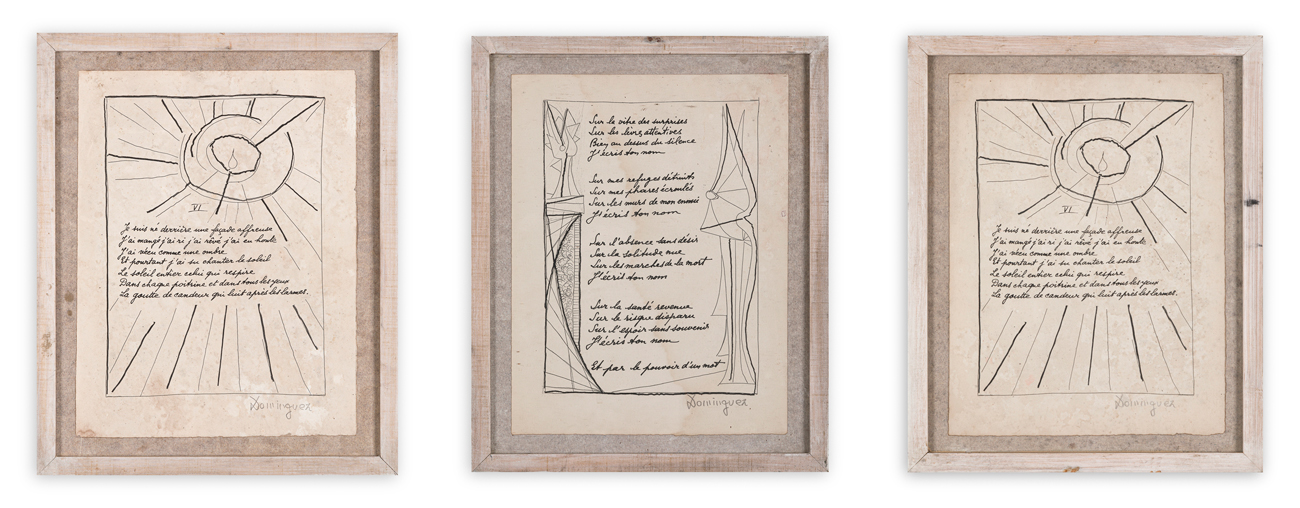 VI
Je suis né derrière une façade affreuse
J'ai mangé j'ai ri j'ai rêvé j'ai eu honte
J'ai vécu comme une ombre
Et pourtant j'ai su chanter le soleil
Le soleil entier celui qui respire
Dans chaque poitrine et dans tous les yeux
La goutte de candeur qui luit après les larmes.
Dominguez
Sur la vitre des surprises
Sur les lèvres attentives
Bien au dessus du silence
J'écris ton nom
Sur mes refuges détruits
Sur mes phares écroulés
Sur les murs de mon ennui
J'écris ton nom
Sur l'absence sans désir
Sur la solitude nue
Sur les marches de la mort
J'écris ton nom
Sur la santé revenue
Sur le risque disparu
Sur l'espoir sans souvenir
J'écris ton nom
Et par le pouvoir d'un mot
Dominguez.
VI
Je suis né derrière une façade affreuse
J'ai mangé j'ai ri j'ai rêvé j'ai eu honte
J'ai vécu comme une ombre
Et pourtant j'ai su chanter le soleil
Le soleil entier celui qui respire
Dans chaque poitrine et dans tous les yeux
La goutte de candeur qui luit après les larmes.
Dominguez